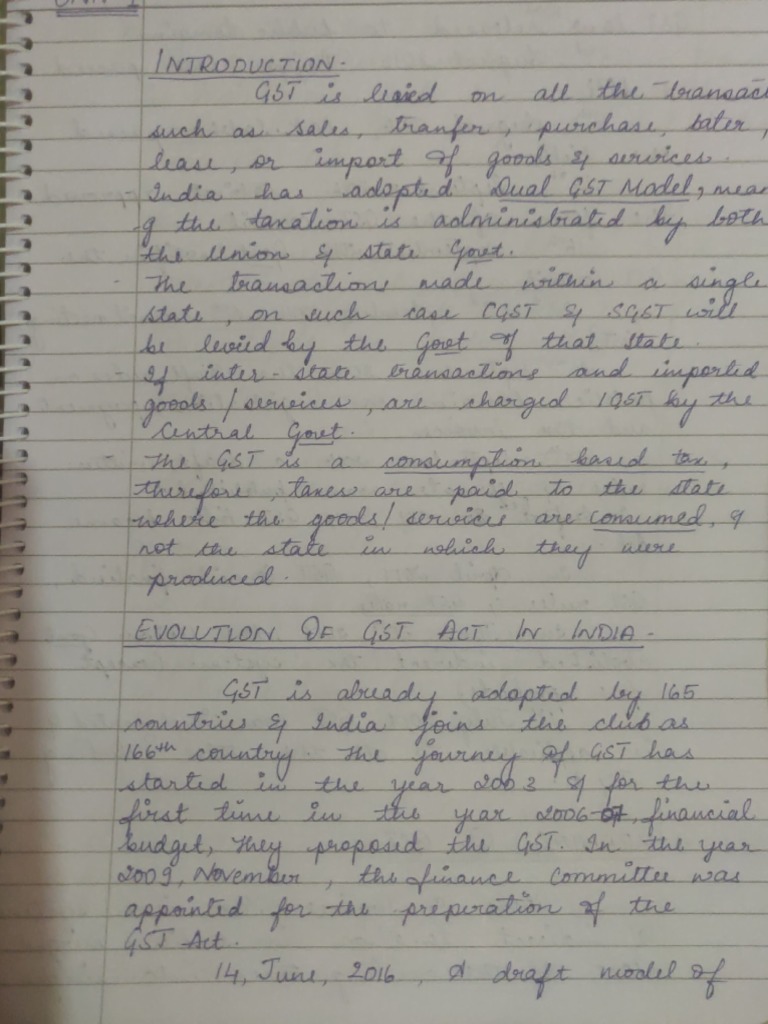 UNIT-1
INTRODUCTION-
GST is levied on all the transac
such as sales, tranfer, purchase, bater,
lease, or import of goods & services.
India has adopted Dual GST Model, mean
g the taxation is administrated by both
the Union & state Govt.
- The transactions made within a single
state, on such case CGST & SGST will
be levied by the Govt of that state.
- If inter-state transactions and imported
goods/services, are charged IGST by the
Central Govt.
- The GST is a consumption based tax,
therefore, taxes are paid to the state
where the goods/services are consumed, &
not the state in which they were
produced.
EVOLUTION OF GST ACT IN INDIA-
GST is already adopted by 165
countries & India joins the club as
166th country. The journey of GST has
started in the year 2003 & for the
first time in the year 2006-07, financial
budget, they proposed the GST. In the year
2009, November, the finance Committee was
appointed for the preperation of the
GST Act.
14, June, 2016, A draft model of